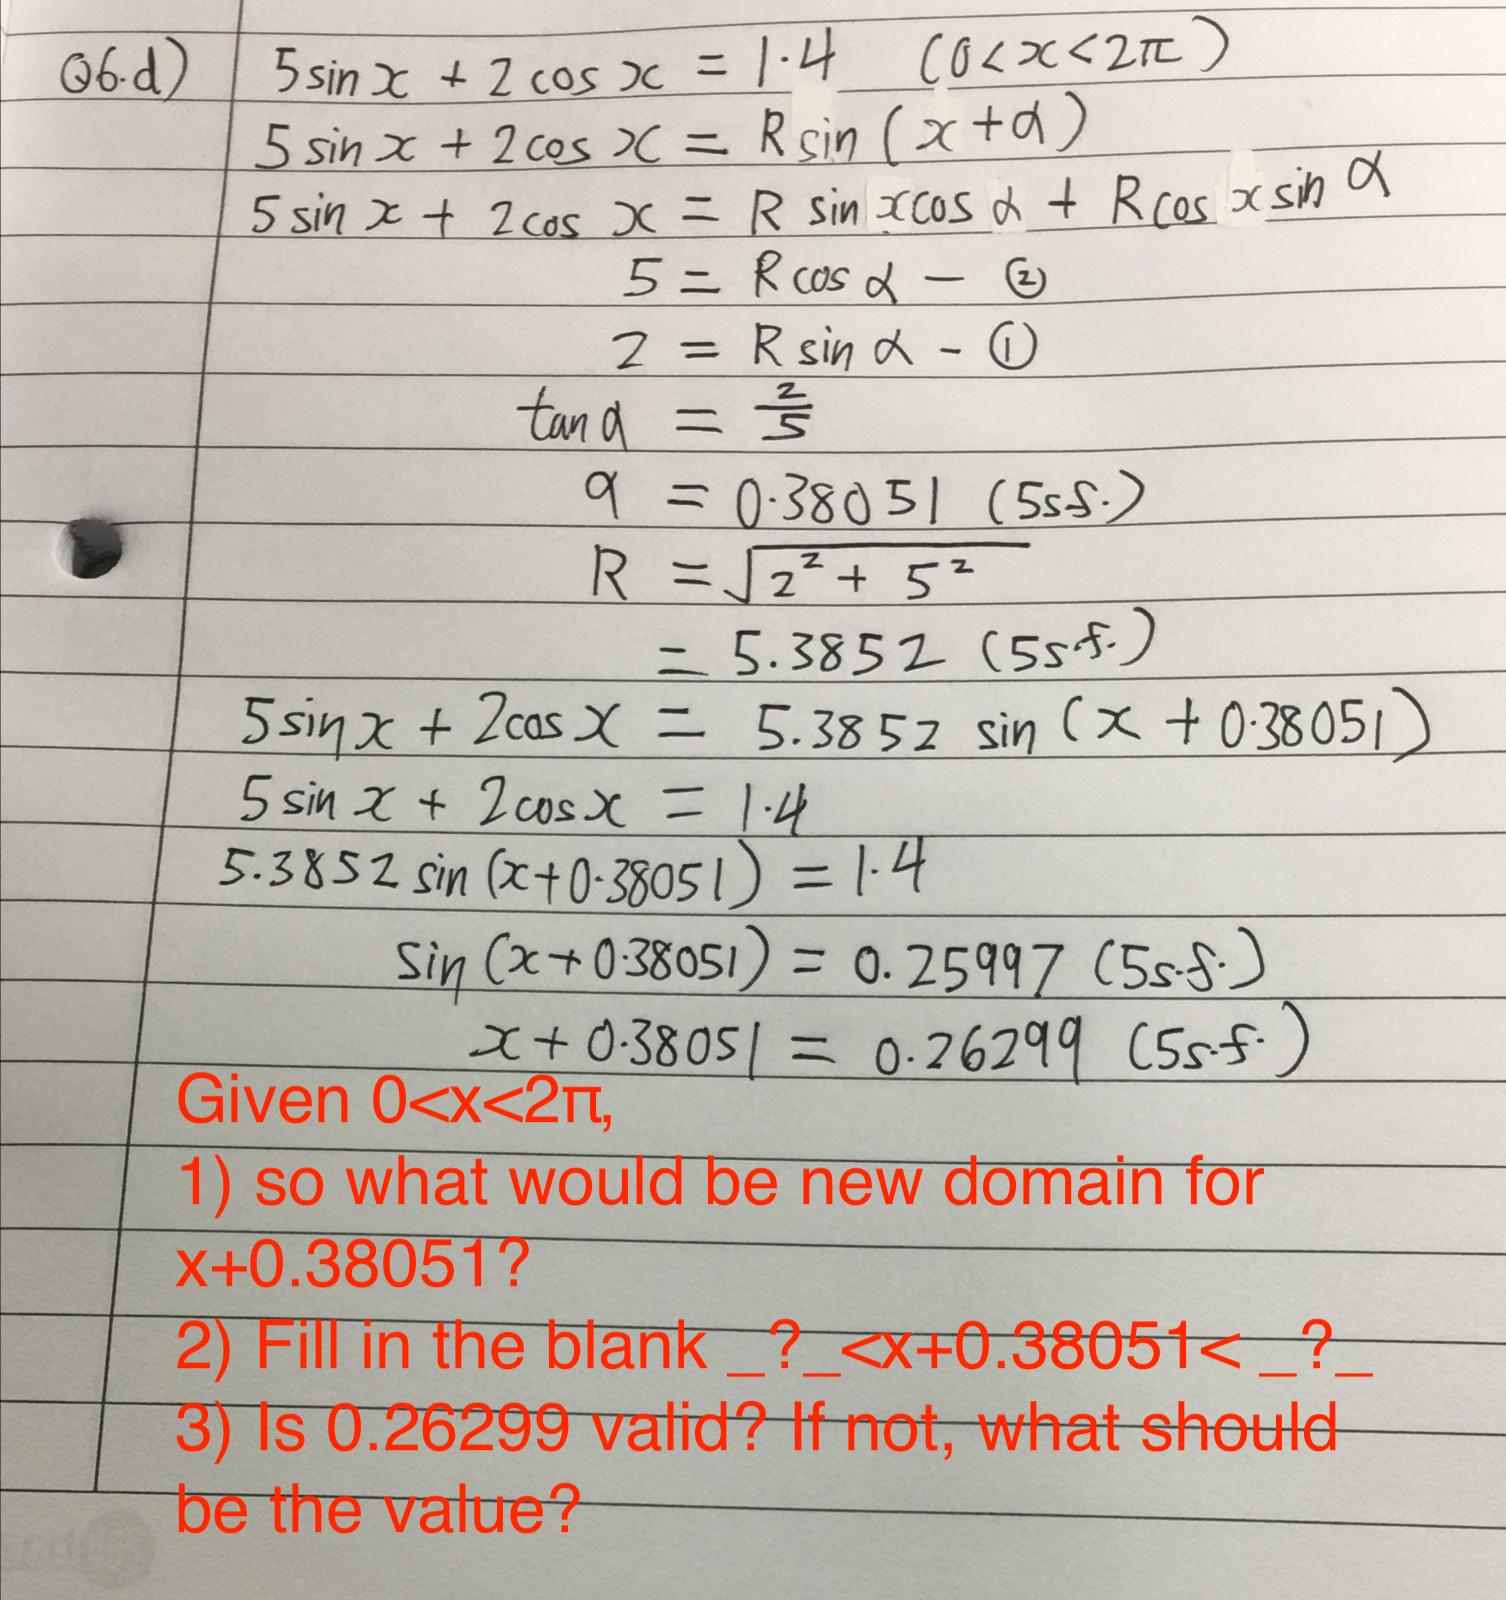 Q6.d) 5 sin x + 2 cos x = 1.4 (0 < x < 2π)
5 sin x + 2 cos x = R sin (x + α)
5 sin x + 2 cos x = R sin x cos α + R cos x sin α
5 = R cos α - ②
2 = R sin α - ①
tan α = 2/5
α = 0.38051 (5s.f.)
R = √(2² + 5²)
= 5.3852 (5s.f.)
5 sin x + 2 cos x = 5.3852 sin (x + 0.38051)
5 sin x + 2 cos x = 1.4
5.3852 sin (x + 0.38051) = 1.4
sin (x + 0.38051) = 0.25997 (5s.f.)
x + 0.38051 = 0.26299 (5s.f.)
Given 0<x<2π,
1) so what would be new domain for
x+0.38051?
2) Fill in the blank _?_<x+0.38051< _?_
3) Is 0.26299 valid? If not, what should
be the value?